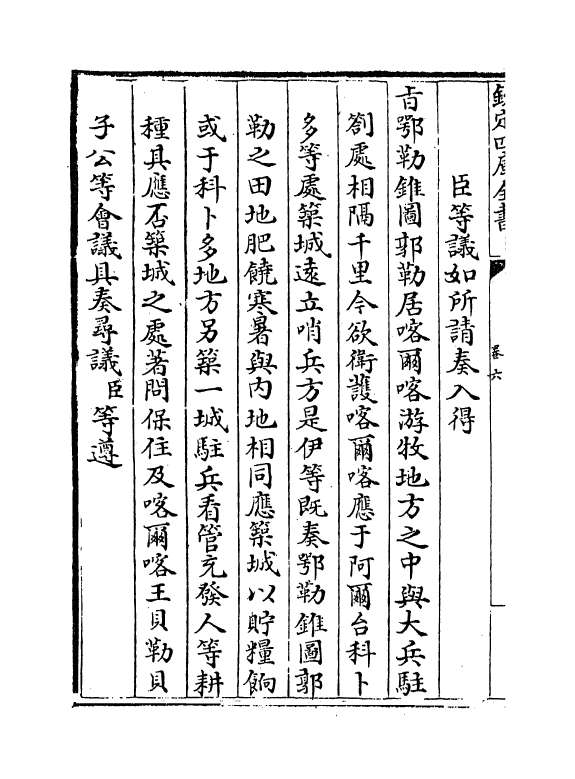 欽定四庫全書
卷六
臣等議如所請奏入得
㫖鄂勒錐圖郭勒居喀爾喀游牧地方之中與大兵駐
劄處相隔千里今欲衛護喀爾喀應于阿爾台科卜
多等處築城遠立哨兵方是伊等既奏鄂勒錐圖郭
勒之田地肥饒寒暑與内地相同應築城以貯糧餉
或于科卜多地方另築一城駐兵看管充發人等耕
種具應否築城之處著問保住及喀爾喀王貝勒貝
子公等會議具奏尋議臣等遵